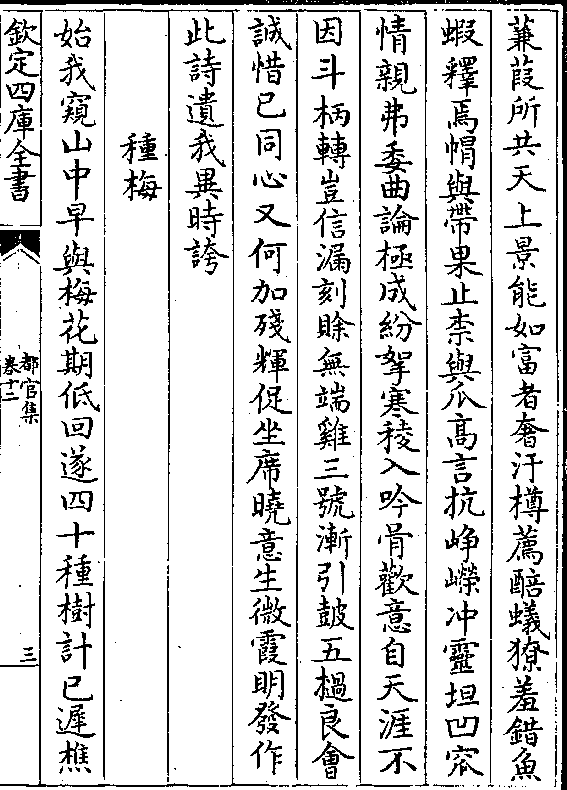 蒹葭所共天上景能如富者奢汙樽薦醅蟻獠羞錯魚
蝦釋焉帽與帶果止柰與瓜高言抗崢嶸冲靈坦凹窊
情親弗委曲論極成紛拏寒稜入吟骨歡意自天涯不
因斗柄轉豈信漏刻賒無端雞三號漸引皷五撾良會
誠惜已同心又何加殘輝促坐席曉意生微霞明發作
此詩遺我異時誇
種梅
始我窺山中早與梅花期低回遂四十種樹計已遲樵
欽定四庫全書
都官集
卷十二
三